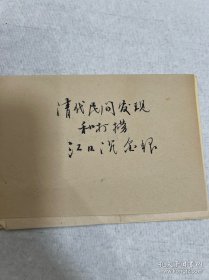 清代民间发现
和打捞
江口沉金银